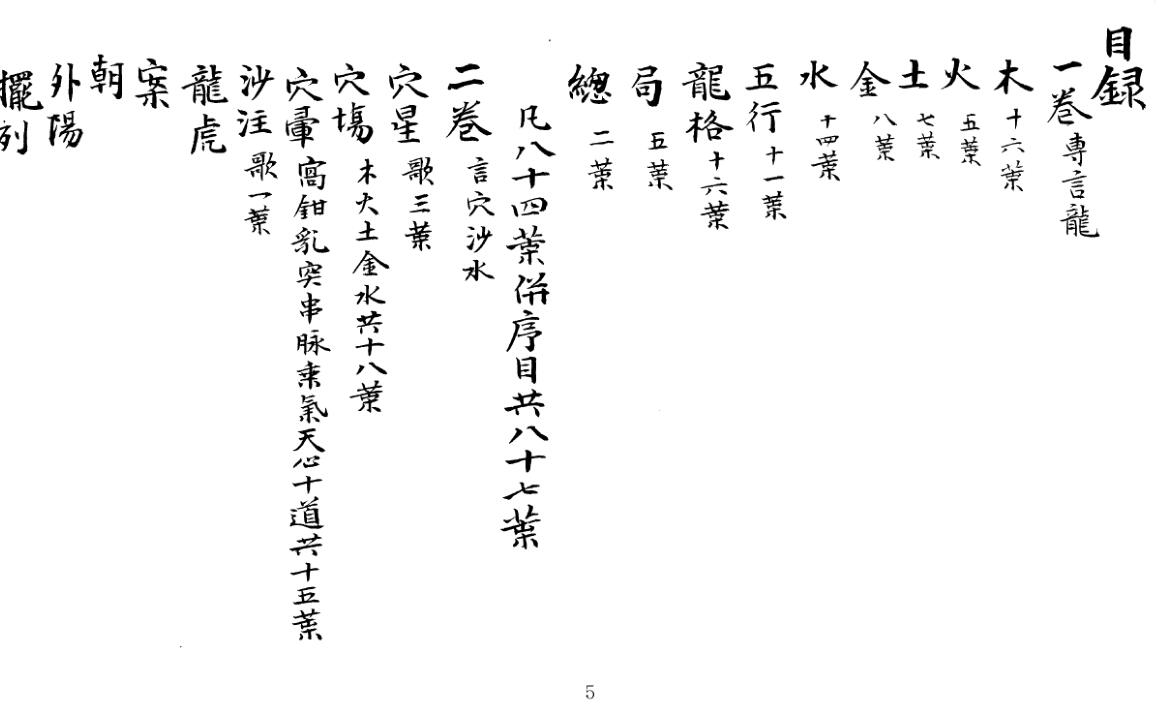 目録
一巻 專言龍
木 十六葉
火 五葉
土 七葉
金 八葉
水 十四葉
五行 十一葉
龍格 十六葉
局 五葉
總 二葉
凡八十四葉併序目共八十七葉
二巻 言穴沙水
穴星 歌三葉
穴塲 木火土金水共十八葉
穴暈 窩鉗乳突串脉乗氣天心十道共十五葉
沙注 歌一葉
龍虎
案
朝
外陽
擺列
5